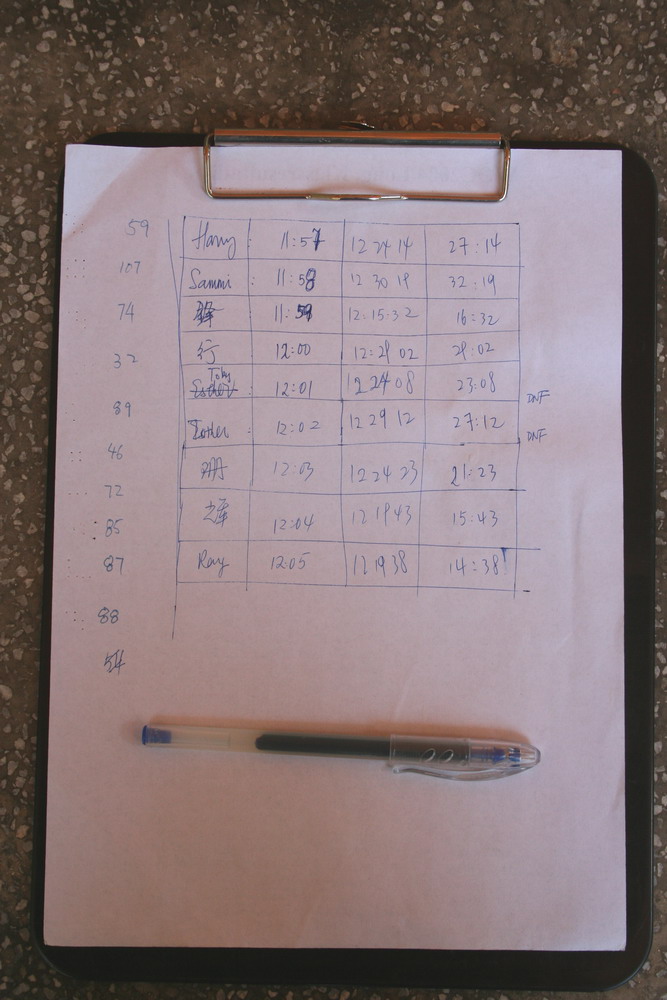 59
Harry : 11:57 12 24 14 27:14
107
Sammi : 11:58 12 30 19 32:19
74
11:59 12:15:32 16:32
32
行 12:00 12:29 02 29:02
Toby
Esther : 12:01 12 24 08 23:08 DNF
89
Esther : 12:02 12 29 12 27:12 DNF
46
珊 12:03 12 24 23 21:23
72
85
12:04 12 19 43 15:43
87
Ray 12:05 12 19 38 14:38
88
54